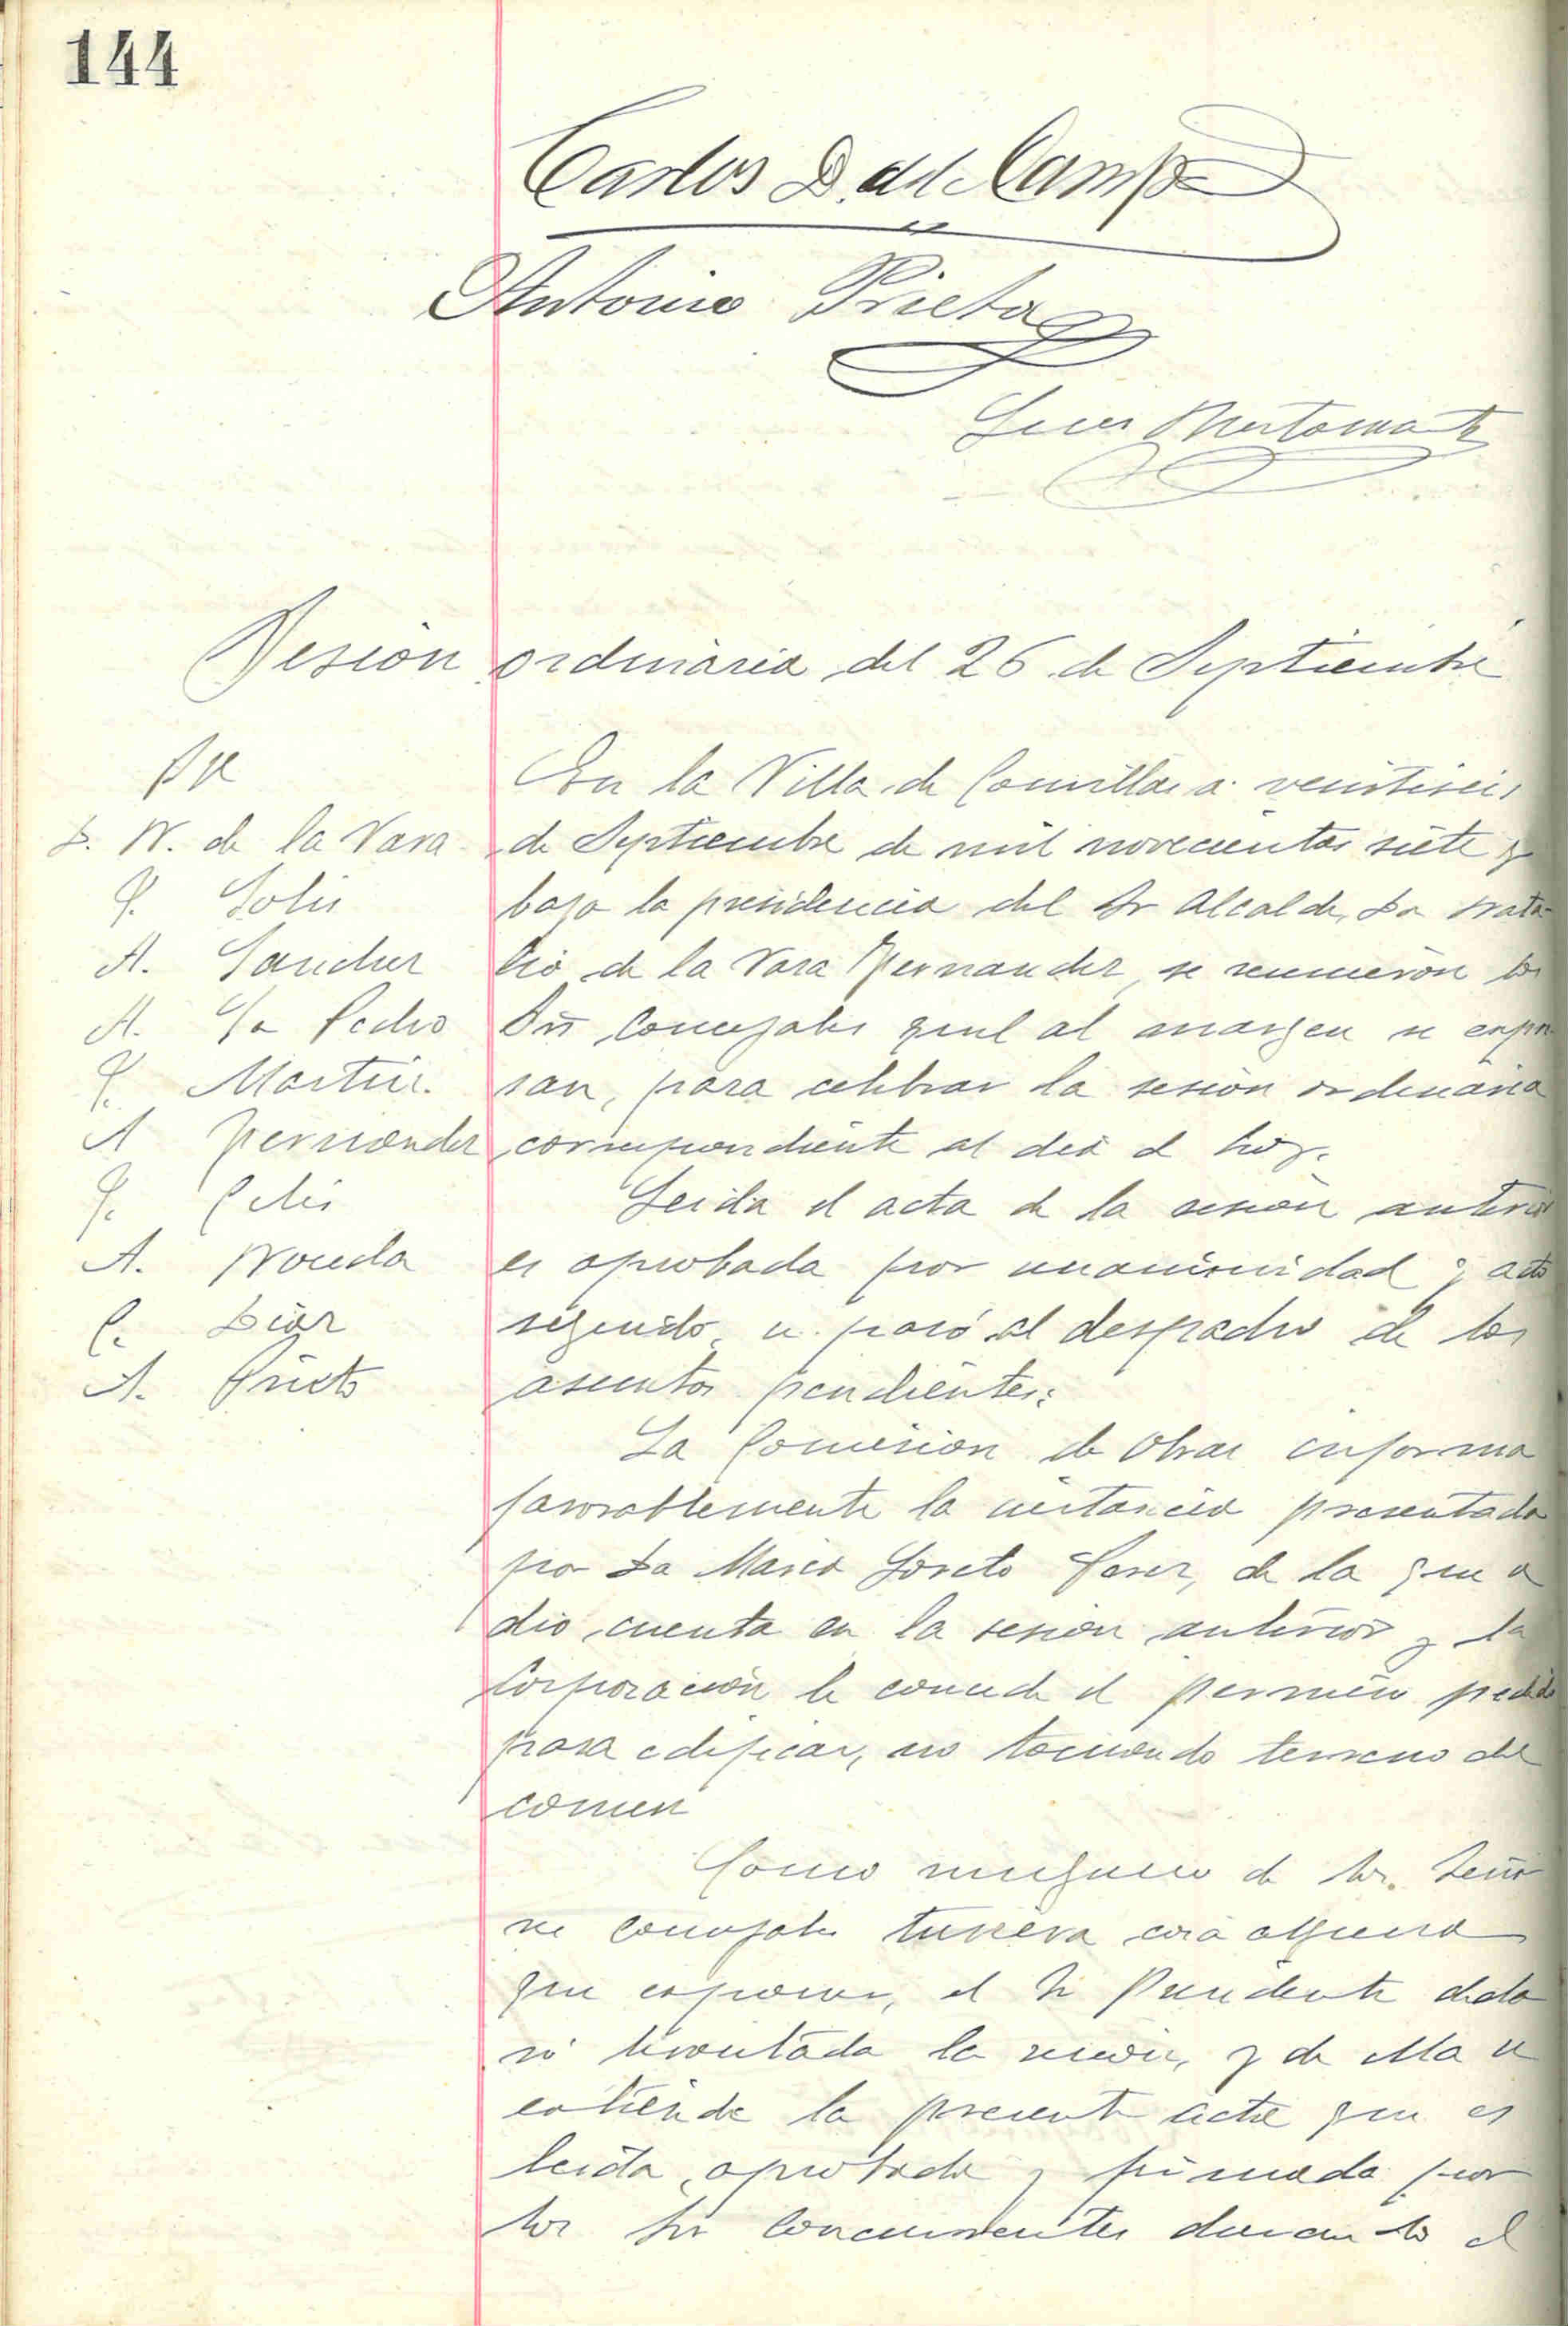 144
Carlos D. del Campo
Antonio Prieto
Sesión ordinaria del 26 de Septiembre
D. N. de la Vara
J. Solis
A. Sanchez
A. Sn Pedro
J. Martin.
A Fernandez
J. Celis
A. Noceda
C. Diaz
A. Prieto
En la Villa de Comillas a veintiseis
de Septiembre de mil novecientos siete y
bajo la presidencia del Sr Alcalde, Dn Nata-
lio de la Vara Fernandez, se reunieron los
Srs Concejales qeul al margen se expre
san, para celebrar la sesion ordinaria
correspondiente al dia de hoy.
Leida el acta de la sesion anterior
es aprobada por unanimidad y acto
seguido se pasó al despacho de los
asuntos pendientes:
La Comision de Obras informa
favorablemente la instancia presentada
por Da Maria Loreto, de la que se
dio cuenta en la sesion anterior y la
Corporación le concede el permiso pedido
para edificar, no tomando terreno del
comun
Como ninguno de los Seño
res Concejales tuviera cosa alguna
que exponer, el Sr Presidente decla
ró levantada la sesión, y de ella se
extiende la presente acta que es
leida, aprobada y firmada por
los Srs Concurrentes dando el